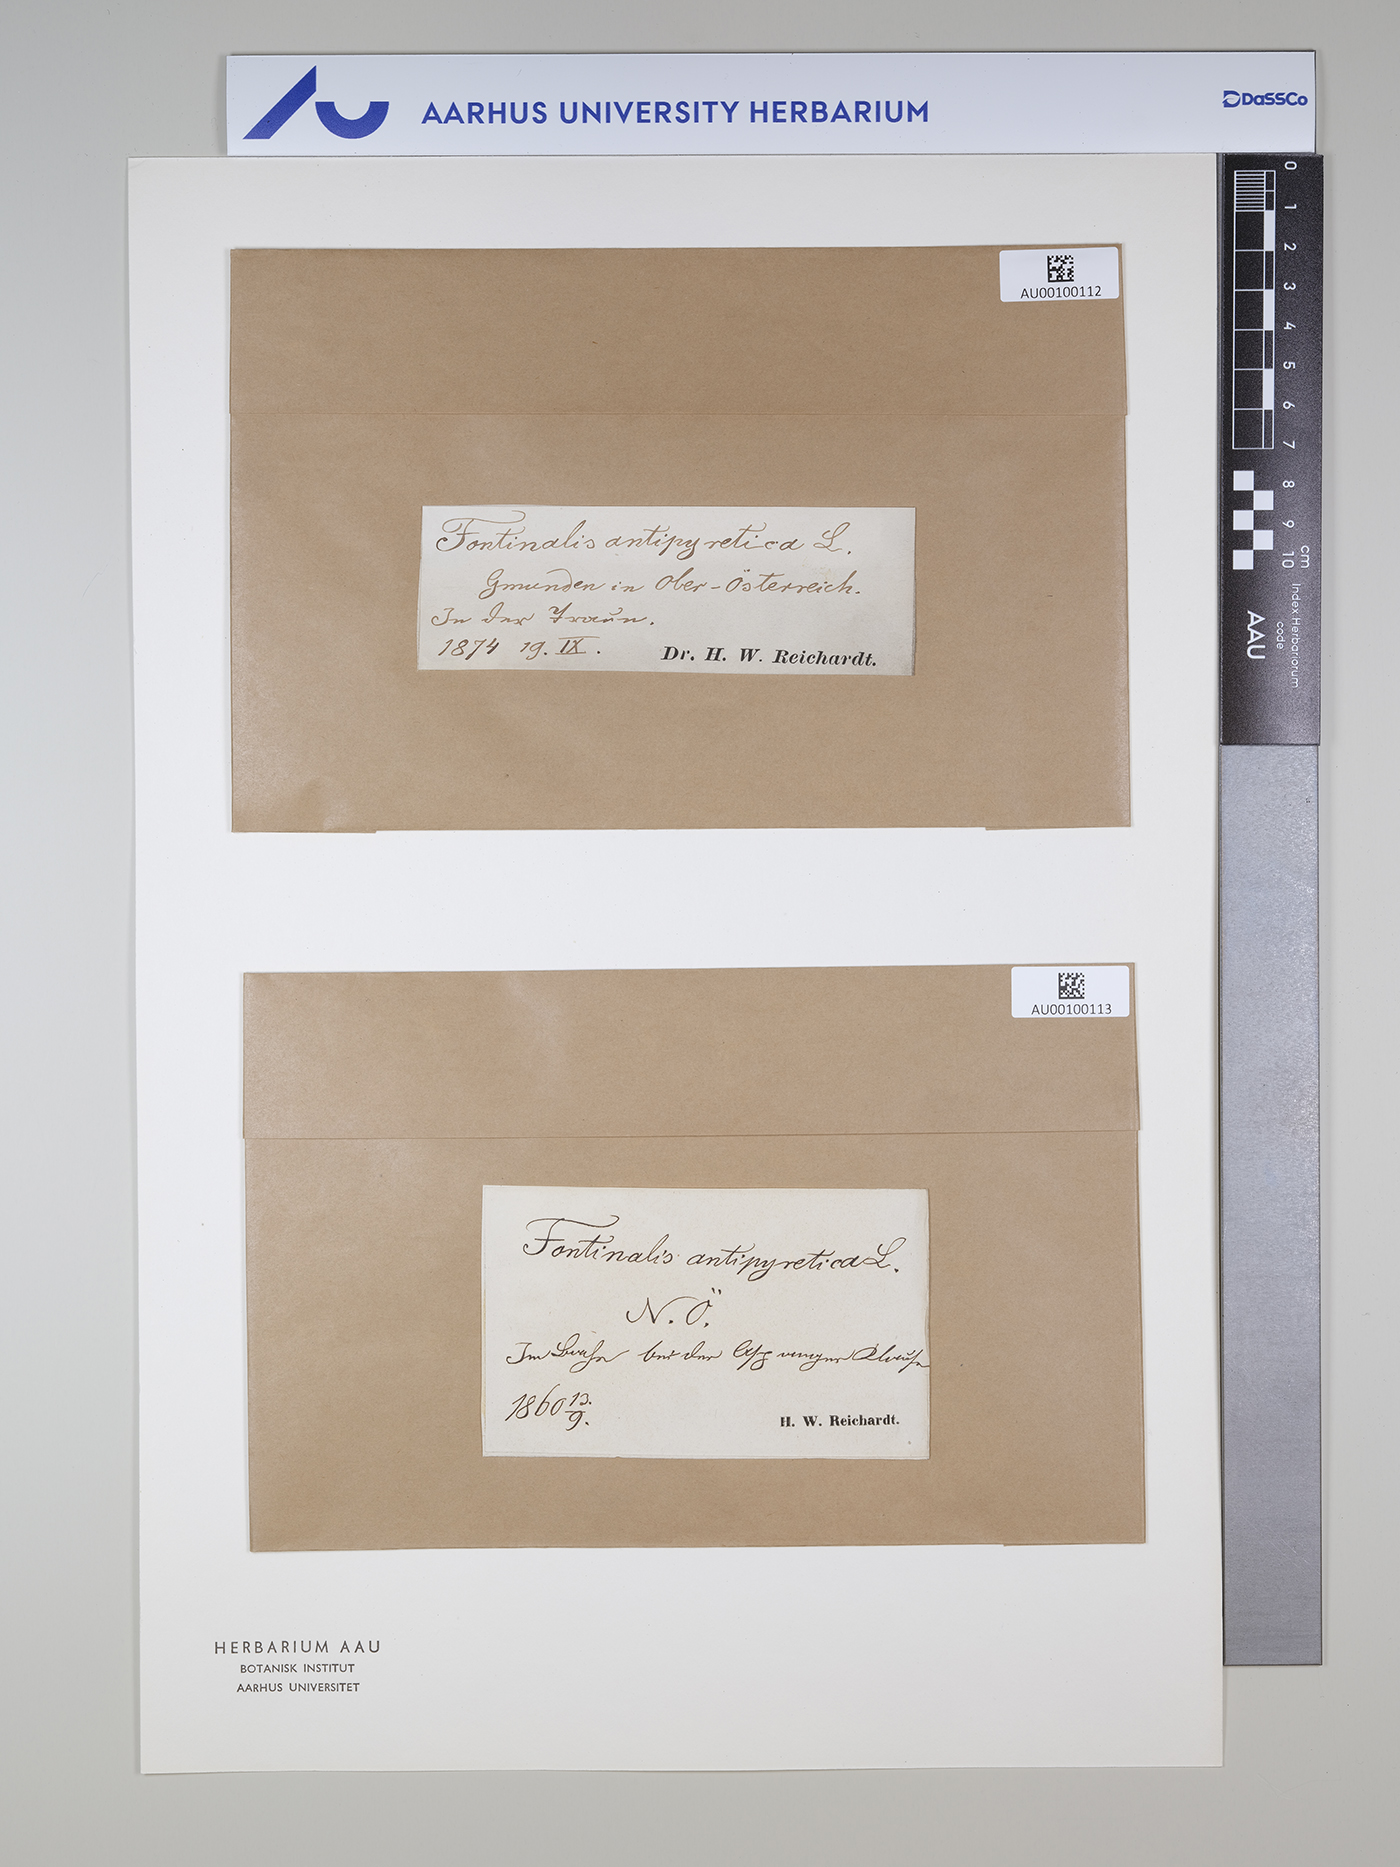 AARHUS UNIVERSITY HERBARIUM
DaSSCo
0 1 2 3 4 5 6 7 8 9 10 cm
Index Herbariorum code
AAU
AU00100112
Fontinalis antipyretica L.
Gmunden in Ober-Österreich.
In der Traun.
1874 19. IX.
Dr. H. W. Reichardt.
AU00100113
Fontinalis antipyretica L.
N. Ö.
Im Bache bei der Aspanger Klause
1860 13/9.
H. W. Reichardt.
HERBARIUM AAU
BOTANISK INSTITUT
AARHUS UNIVERSITET